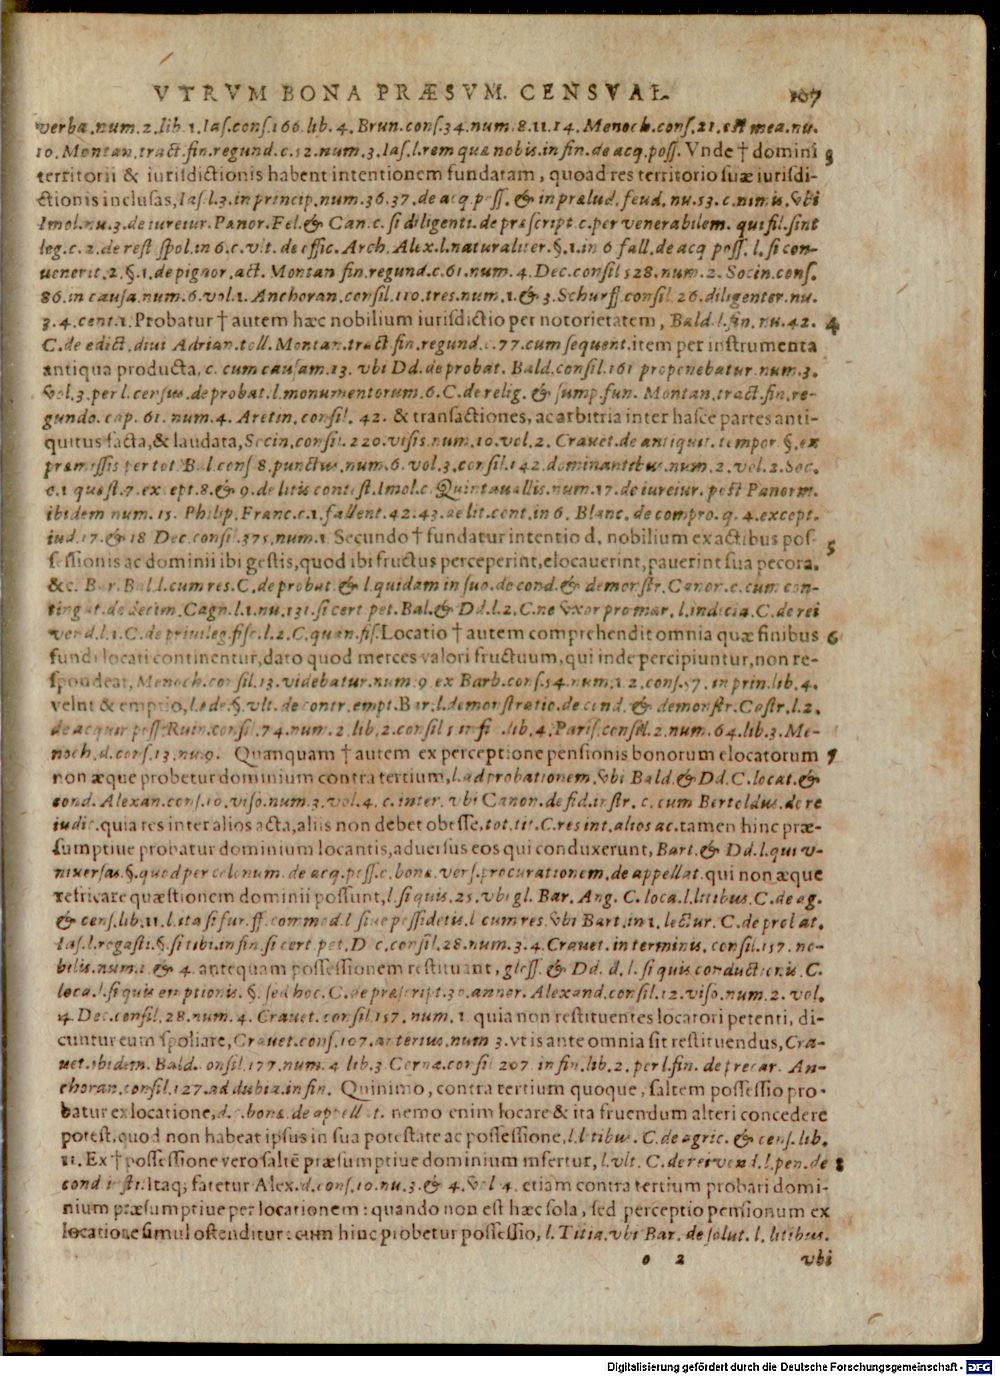 VTRVM BONA PRÆSVM. CENSVAL. 107
verba.num.2.lib.1.Ias.cons.166.lib.4. Brun.cons.34.num.8.11.14. Menoch.cons.21. est mea.nu.
10. Montan.tract.fin.regund.c.52.num.3.Ias.l.rem quæ nobis.in fin.de acq.poss. Vnde † domini 3
territorii & iurisdictionis habent intentionem fundatam, quoad res territorio suæ iurisdi-
ctionis inclusas, Ias l.3.in princip.num.36.37.de acq poss. & in prælud. feud. nu.53. c.nimis. vbi
Imol.nu.3.de iureiur. Panor.Fel.& Can c. si diligenti.de præscript.c.per venerabilem. qui fil.sint
leg.c.2.de rest spol.in 6.c.vlt.de offic. Arch. Alex.l.naturaliter.§.1.in 6 fall.de acq poss. l.si con-
uenerit.2.§.1.de pignor.act. Montan fin.regund.c.61.num.4. Dec.consil 528.num.2. Socin.cons.
86.in causa.num.6.vol.1. Anchoran.consil.110.tres.num.1.& 3.Schurff.consil.26.diligenter.nu.
3.4.cent.1. Probatur † autem hæc nobilium iurisdictio per notorietatem, Bald.l.fin.nu.42. 4
C.de edict.diui Adrian.toll. Montan.tract fin.regund.c.77.cum sequent. item per instrumenta
antiqua producta, c. cum causam.13. vbi Dd.de probat. Bald.consil.161 proponebatur.num.3.
vol.3.per l.census.de probat.l.monumentorum.6.C.de relig. & sump.fun. Montan.tract.fin.re-
gundo.cap. 61.num.4. Aretin.consil. 42. & transactiones, ac arbitria inter hasce partes anti-
quitus facta,& laudata, Socin.consil. 220.visis num.10.vol.2. Crauet.de antiquit.tempor §.ex
præmissis per tot. Bal.cons 8.punctus.num.6.vol.3.consil.142.dominantibus.num.2.vol.2.Soc.
c.1 quæst.7.except.8.& 9.de litis contest.Imol.c.Quintauallis.num.17.de iureiur. post Panorm.
ibidem num.15. Philip. Franc.c.1.fallent.42.43.de lit.cent.in 6. Blanc.de compro.q.4.except.
iud.17.& 18 Dec.consil.375.num.1 Secundo † fundatur intentio d. nobilium ex actibus pos- 5
sessionis ac dominii ibi gestis, quod ibi fructus perceperint, elocauerint, pauerint sua pecora.
&c. Bar.Bald.l.cum res.C.de probat.& l.quidam in suo.de cond.& demonstr.Canon.c.cum con-
tingat.de decim.Cagn.l.1.nu.131.si cert pet.Bal.& Dd.l.2.C.ne vxor pro mar. l.indicia.C.de rei
vend.l.1.C.de priuileg.fisc.l.2.C.quan.fis. Locatio † autem comprehendit omnia quæ finibus 6
fundi locati continentur, dato quod merces valori fructuum, qui inde percipiuntur, non re-
spondeat, Menoch.consil.13.videbatur.num 9 ex Barb.cons.54.num.12.cons.57.in prin.lib.4.
velut & emptio, l.æde.§.vlt.de contr.empt.Bar.l.demonstratio.de cond. & demonstr.Castr.l.2.
de acquir poss.Ruin.consil.74.num.2.lib.2.consil 5 in fi .lib.4.Paris.consil.2.num.64.lib.3.Me-
noch.d.cons.13.nu.9. Quamquam † autem ex perceptione pensionis bonorum elocatorum 7
non æque probetur dominium contra tertium, l.ad probationem.vbi Bald.& Dd.C.locat.&
cond. Alexan.cons.10.viso.num.3.vol.4. c.inter. vbi Canon.de fid.instr. c. cum Bertoldus.de re
iudic. quia res inter alios acta, aliis non debet obesse, tot.tit.C.res int.alios ac. tamen hinc præ-
sumptiue probatur dominium locantis, aduersus eos qui conduxerunt, Bart.& Dd.l.qui v-
niuersas.§.quod per colonum.de acq.poss.c.bonæ.vers.procurationem.de appellat. qui non æque
refricare quæstionem dominii possunt, l.si quis.25.vbi gl. Bar. Ang. C. loca.l.litibus.C.de ag.
& cens.lib.11.l.ita si fur.ff.commod.l si de possidetis.l cum res.vbi Bart.in 1. lectur. C.de probat.
Ias.l.rogasti.§.si tibi.in fin.si cert pet.Dec.consil.28.num.3.4.Crauet.in terminis. consil.157.no-
bilis.num.1 & 4. antequam possessionem restituant, gloss. & Dd. d. l. si quis conductionis. C.
loca.l.si quis emptionis. §. sed hoc. C.de præscript.30.annor. Alexand.consil.12.viso.num.2. vol.
4. Dec.consil.28.num.4. Crauet.consil.157.num.1. quia non restituentes locatori petenti, di-
cuntur eum spoliare, Crauet.cons.107.alterius.num 3. vt is ante omnia sit restituendus, Cra-
uet.ibidem. Bald. consil.177.num.4 lib.3 Corne.consil 207 in fin.lib.2.per l.fin.de precar. An-
choran.consil.127.ad dubia.in fin. Quinimo, contra tertium quoque, saltem possessio pro-
batur ex locatione, d.c.bonæ.de appellat. nemo enim locare & ita fruendum alteri concedere
potest, quod non habeat ipsus in sua potestate ac possessione, l.litibus. C.de agric. & cens.lib.
11. Ex † possessione vero saltē præsumptiue dominium infertur, l.vlt. C.de rei vend.l.pen.de 8
cond instr. Itaq; fatetur Alex.d.cons.10.nu.3.& 4.vol 4. etiam contra tertium probari domi-
nium præsumptiue per locationem: quando non est hæc sola, sed perceptio pensionum ex
locatione simul ostenditur: cum hinc probetur possessio, l. Titia.vbi Bar. de solut. l. litibus.
o 2 vbi
Digitalisierung gefördert durch die Deutsche Forschungsgemeinschaft - DFG